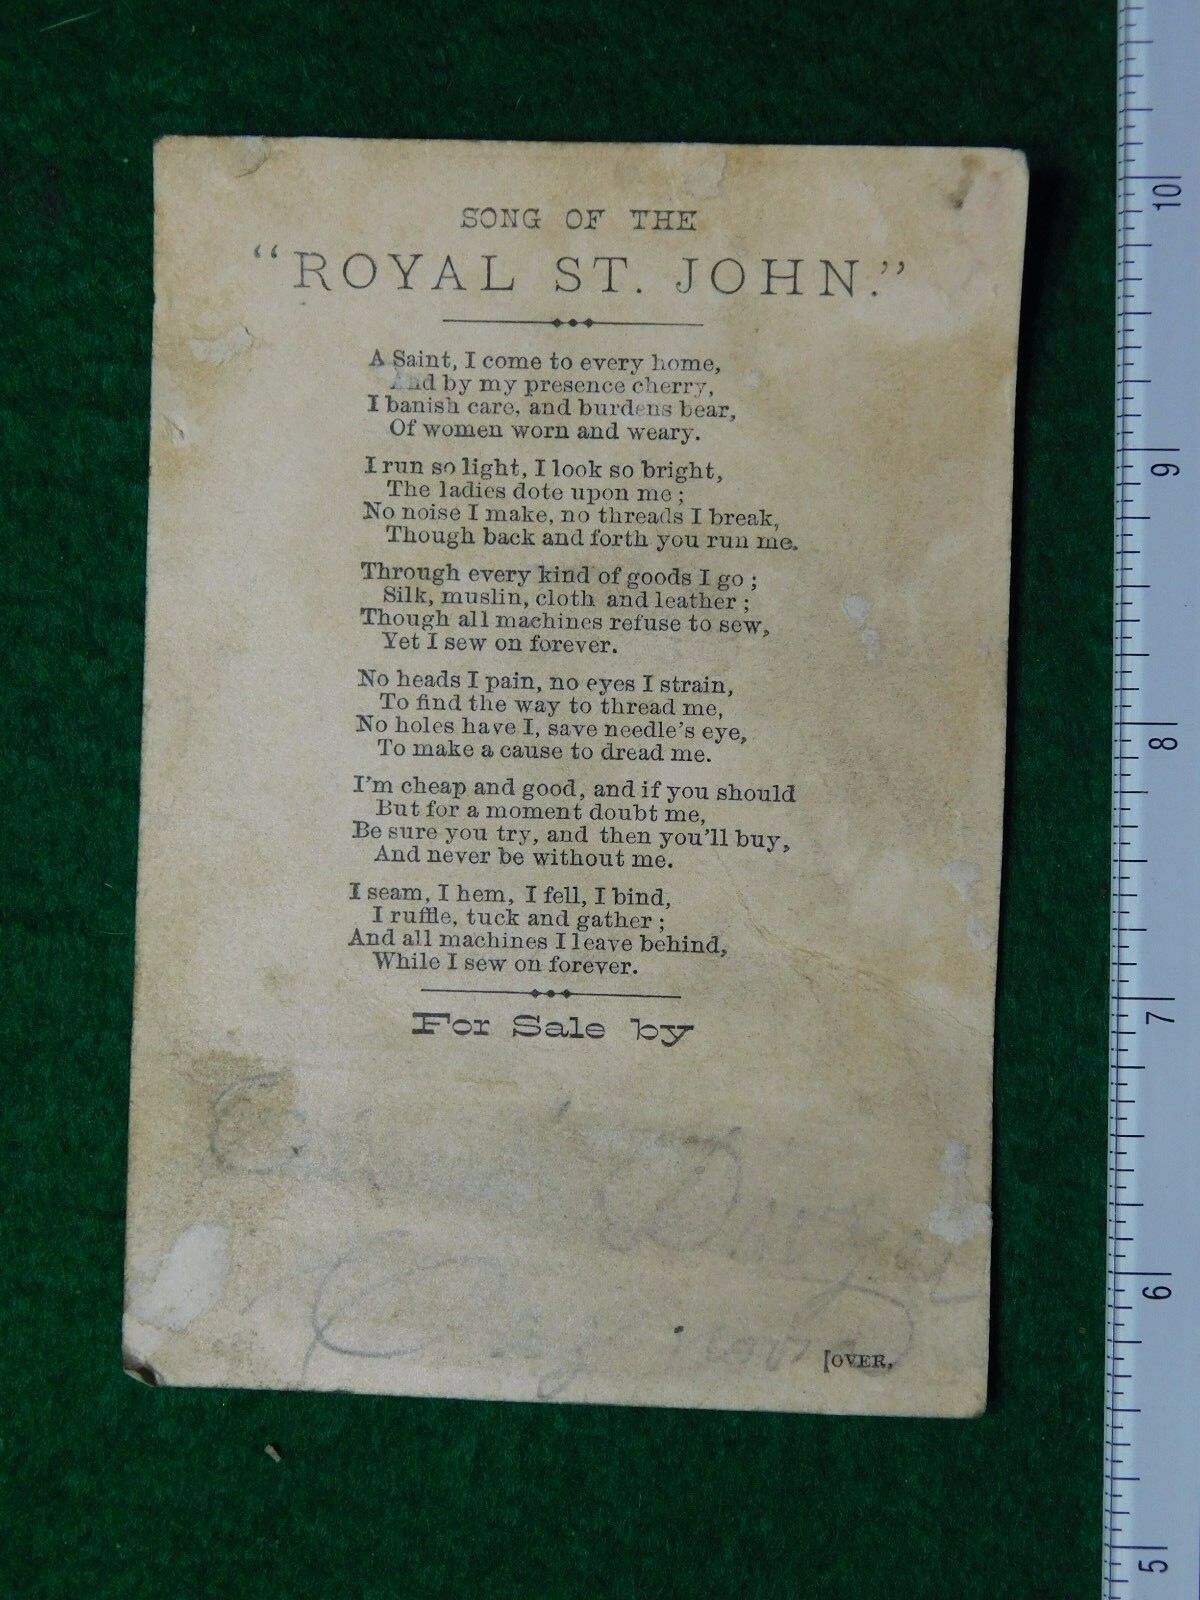 SONG OF THE
"ROYAL ST. JOHN."
A Saint, I come to every home,
And by my presence cherry,
I banish care, and burdens bear,
Of women worn and weary.
I run so light, I look so bright,
The ladies dote upon me;
No noise I make, no threads I break,
Though back and forth you run me.
Through every kind of goods I go;
Silk, muslin, cloth and leather;
Though all machines refuse to sew,
Yet I sew on forever.
No heads I pain, no eyes I strain,
To find the way to thread me,
No holes have I, save needle's eye,
To make a cause to dread me.
I'm cheap and good, and if you should
But for a moment doubt me,
Be sure you try, and then you'll buy,
And never be without me.
I seam, I hem, I fell, I bind,
I ruffle, tuck and gather;
And all machines I leave behind,
While I sew on forever.
For Sale by
[OVER.
10
9
8
7
6
5